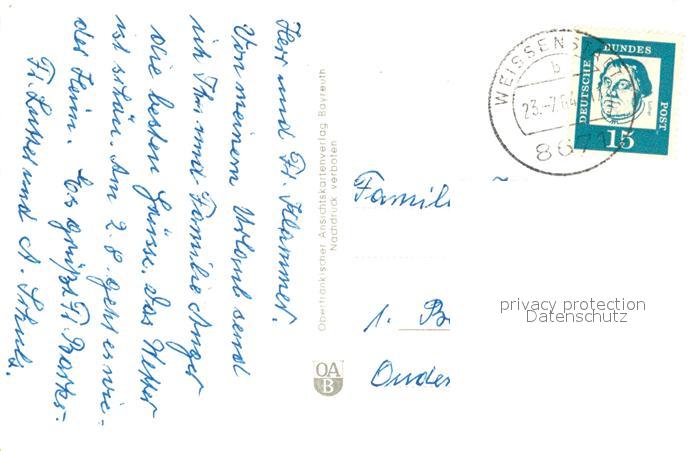 Herr und Fr. Klammer.
Von meinem Urlaub send
ich Ihn. und Familie Anger
die besten Grüsse. das Wetter
ist schön. Am 2.8. geht es wie-
der Heim. Es grüßt Fr.
Fr. und A. Schulz.
Oberfränkischer Ansichtskartenverlag Bayreuth
Nachdruck verboten
OA
B
WEISSENSTADT
b
23.-7.64
8671
DEUTSCHE
BUNDES
POST
15
Famili
1. B
privacy protection
Datenschutz